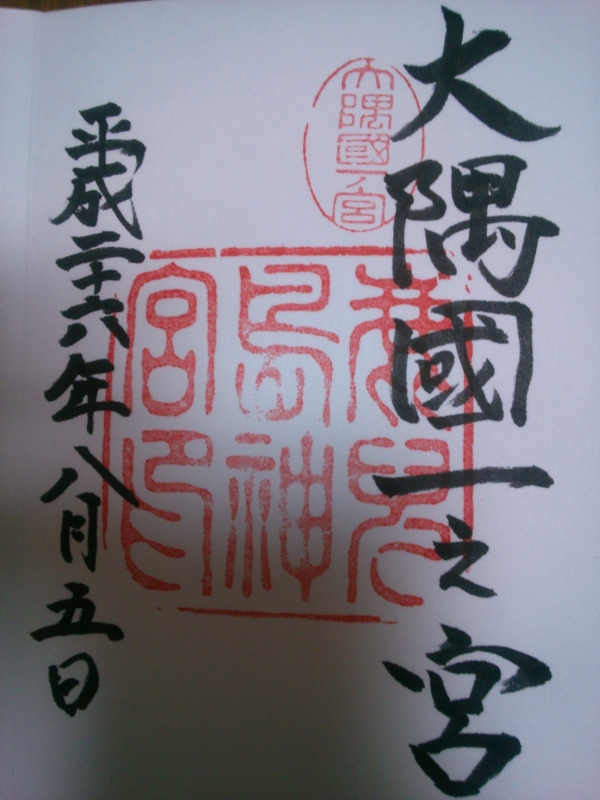 大隅國一之宮
大隅國一宮
鹿兒
島神
宮印
平成二十六年八月五日